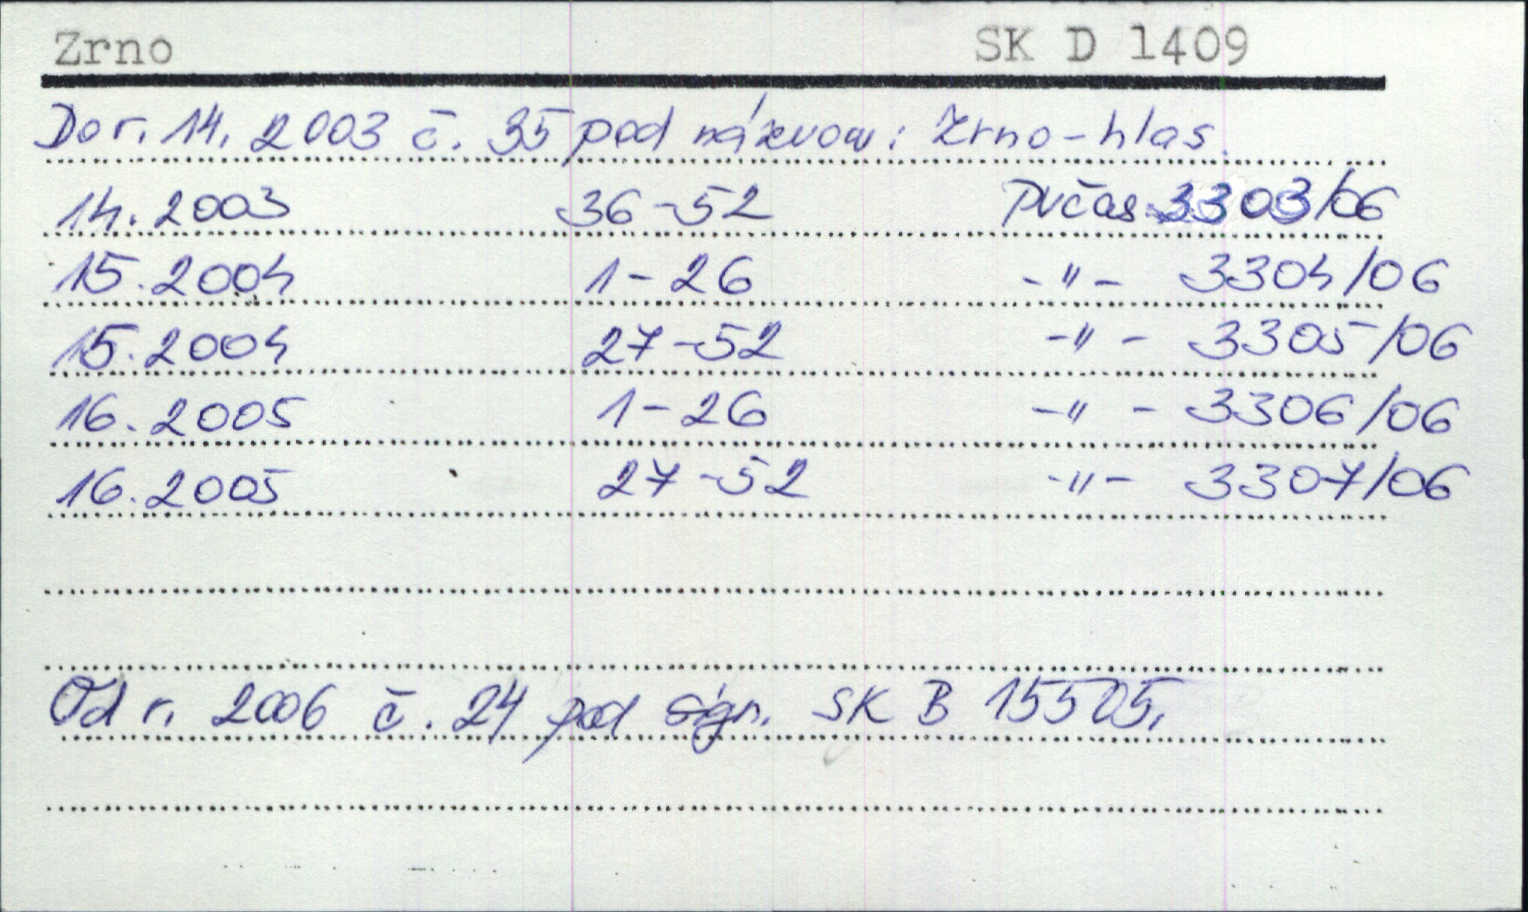 Zrno SK D 1409
Do r. 14. 2003 č. 35 pod názvom: Zrno-hlas.
14. 2003 36-52 PVčas 3303/06
15. 2004 1-26 -"- 3304/06
15. 2004 27-52 -"- 3305/06
16. 2005 1-26 -"- 3306/06
16. 2005 27-52 -"- 3307/06
Od r. 2006 č. 24 pod sign. SK B 15505.